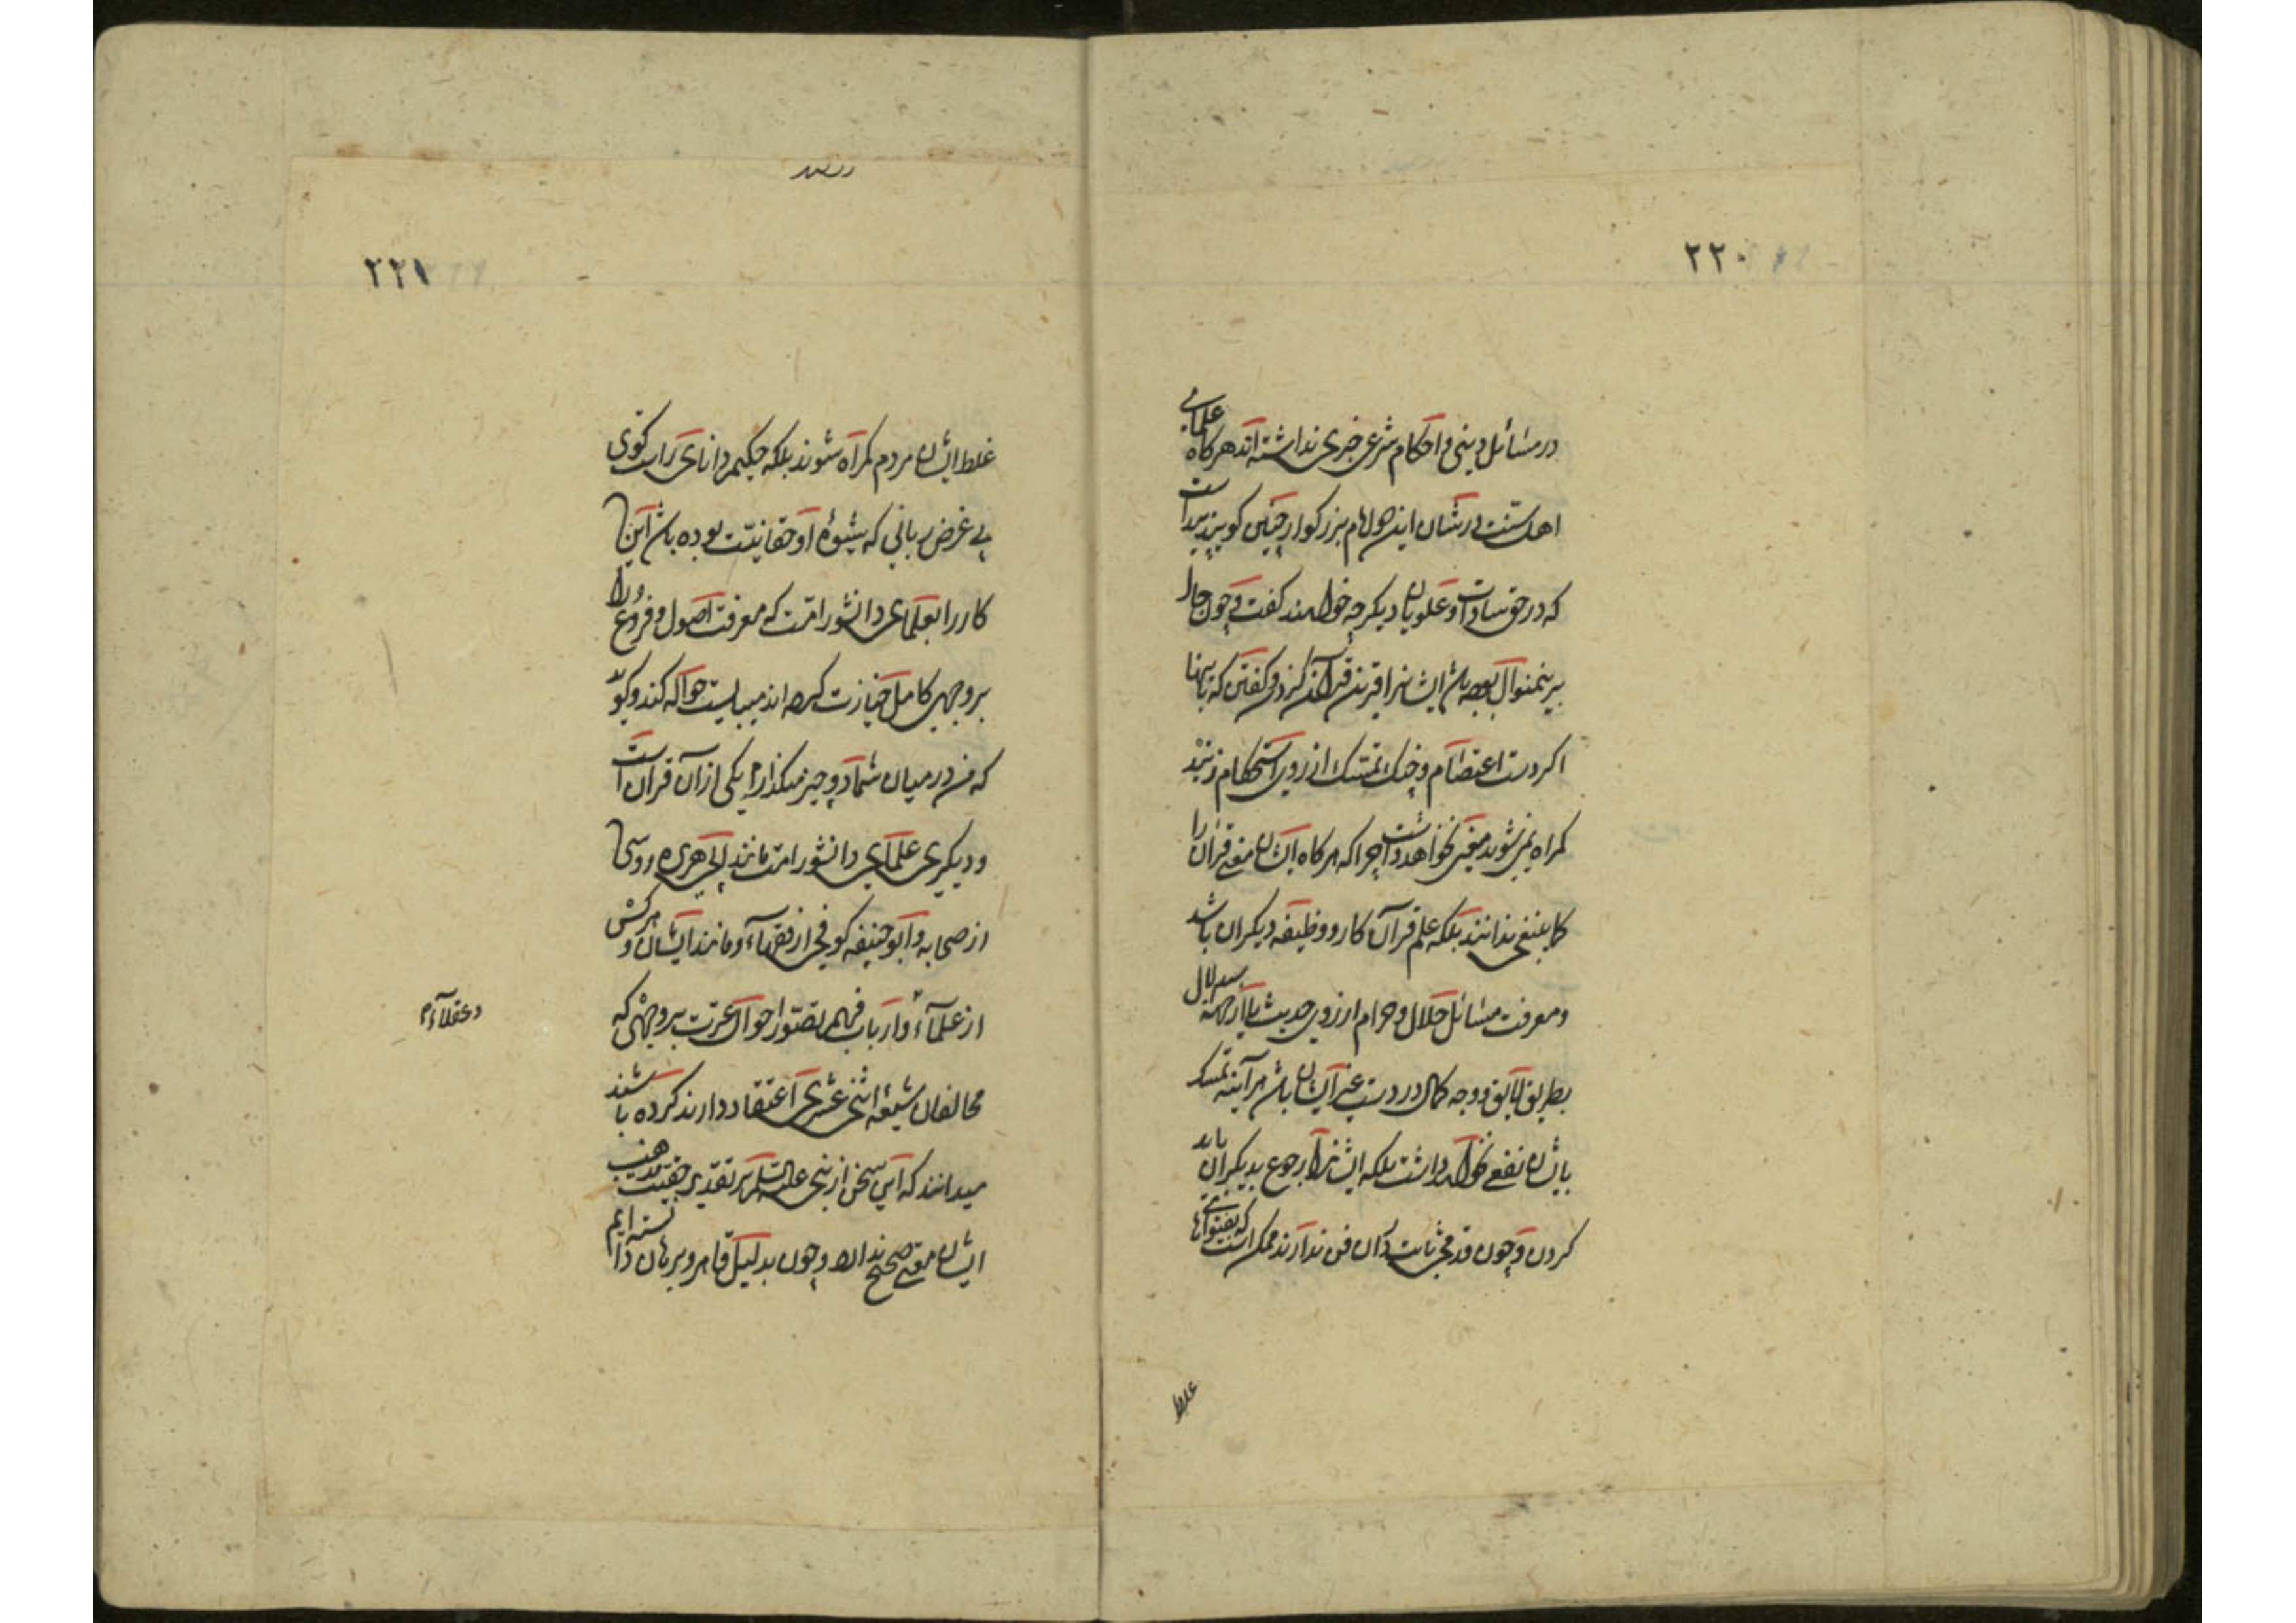 ٢٢٠
در مسائل دینی و احکام شرعی خبری نداشته‌اند هرکاه علمای
اهل سنت در شأن این امام بزرکوار چنین کویند پیداست
که در حق سادات و علویان دیکر چه خواهند کفت و چون حال
برینمنوال بوده باشد ایشانرا قرین قرآن کردن و کفتن که باینها
اکر دست اعتصام و چنک تمسک از روی استحکام زنید
کمراه نمی‌شوید معنی نخواهد داشت چرا که هرکاه ایشان معنی قرآن را
کما ینبغی ندانند بلکه علم قرآن کار و وظیفه دیکران باشد
و معرفت مسائل حلال و حرام از روی حدیث یا از جهة استدلال
بطریق لایق و وجه کمال در دست غیر ایشان باشد هرآینه تمسک
بایشان نفعی نخواهد داشت بلکه ایشانرا رجوع بدیکران باید
کردن و چون قدمی ثابت در آن فن ندارند ممکن است که بفتوای
غلط
٢٢١
غلط ایشان مردم کمراه شوند بلکه حکیم دانای راست کوی
بی غرض ربانی که شیوهٔ او حقانیت بوده باشد این
کار را بعلمای دانشور امت که معرفت اصول و فروع را
بر وجهی کامل حیازت کرده‌اند میبایست حواله کند و کوید
که من در میان شما دو چیز میکذارم یکی از آن قرآن است
و دیکری علمای دانشور امت مانند ابی هریره دوسی
از صحابه و ابو حنیفه کوفی از فقهاء و مانند ایشان و هرکس
از علمآء و ارباب فهم تصور احوال عترت بر وجهی که
و عقلاء
مخالفان شیعه اثنی عشری اعتقاد دارند کرده باشند
میدانند که این سخن از نبی علیه السلم بر تقدیر حقیت مذهب
ایشان معنی صحیح ندارد و چون بدلیل قاهر و برهان دانسته‌ایم